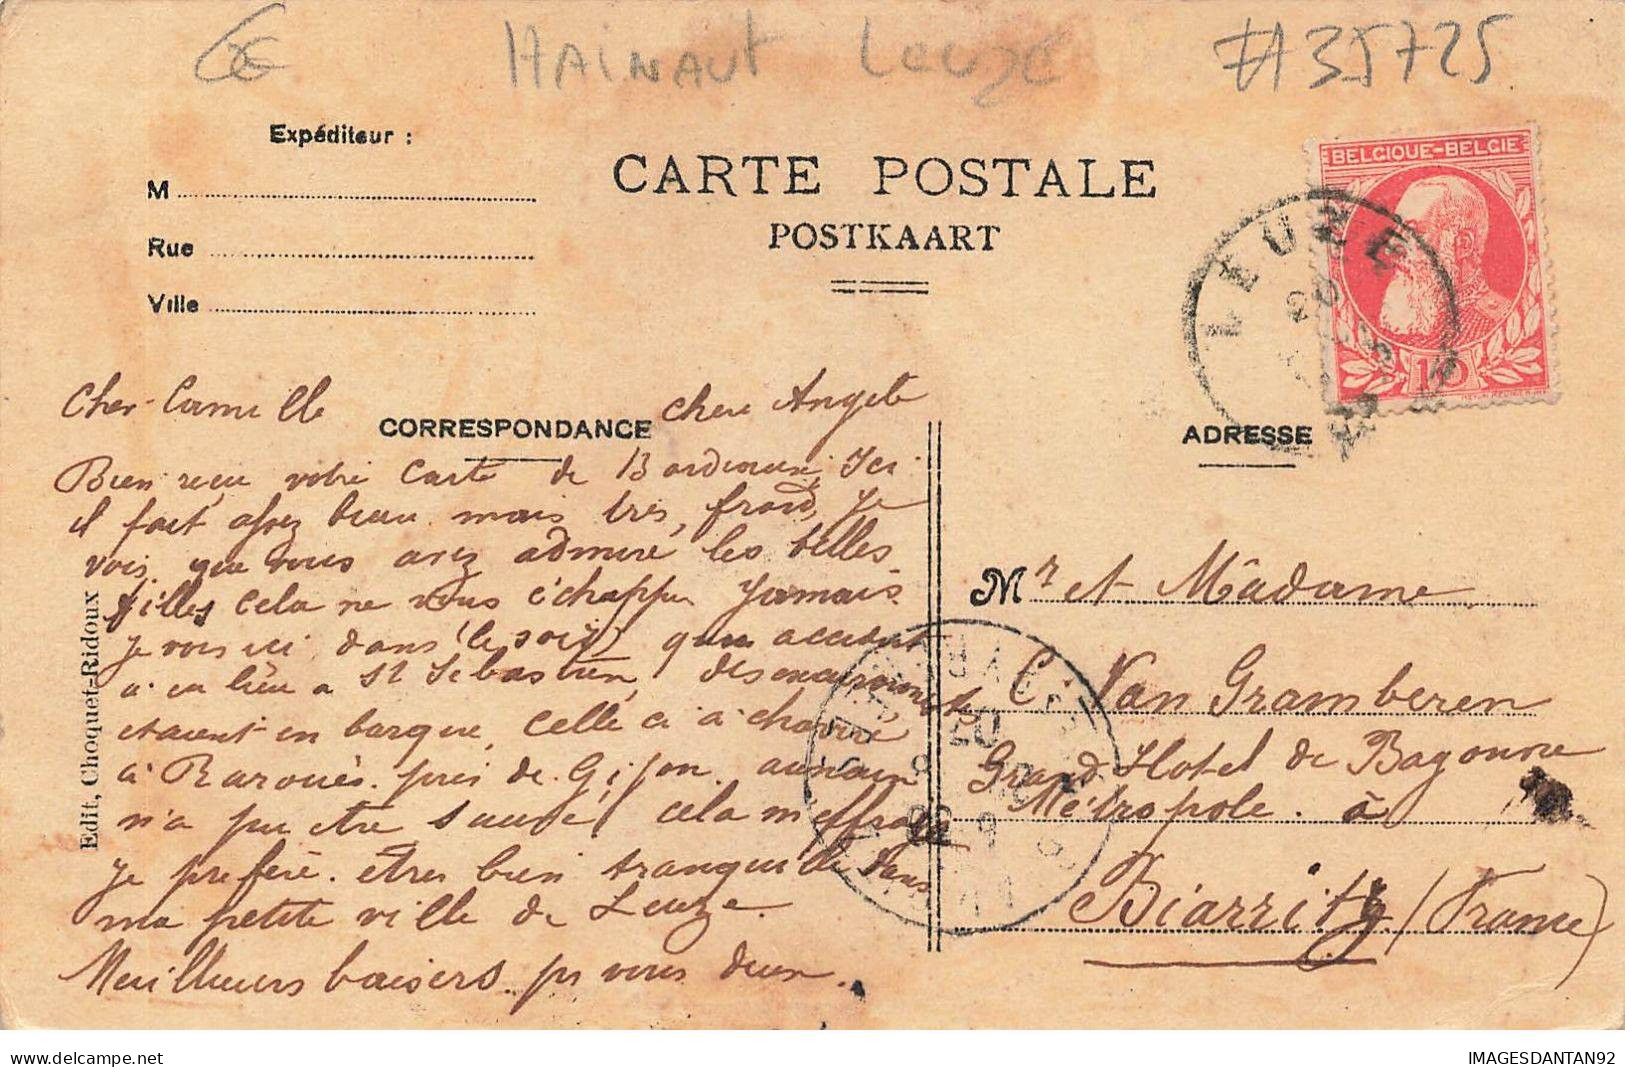 HAINAUT Leuze #35725
Expéditeur :
M
Rue
Ville
CARTE POSTALE
POSTKAART
BELGIQUE-BELGIE
10
LEUZE
CORRESPONDANCE
ADRESSE
Cher Camille chere Angele
Bien reçu votre Carte de Bordeaux, Ici
il fait assez beau mais très froid, Je
vois que vous avez admiré les belles
filles cela ne vous échappe Jamais.
Je vois ici dans (le soir) qu'un accident
a eu lieu a St Sebastien, des
etaient en barque, celle ci a chaviré
à près de Gijon. aucun
n'a pu etre sauvé, cela m'effraye
Je prefère êtres bien tranquille dans
ma petite ville de Leuze.
Meilleurs baisers pr vous deux.
Mr et Madame
C. Van Gramberen
Grand Hotel de Bayonne
Métropole. à
Biarritz (France)
Edit, Choquet-Ridoux
IMAGESDANTAN92